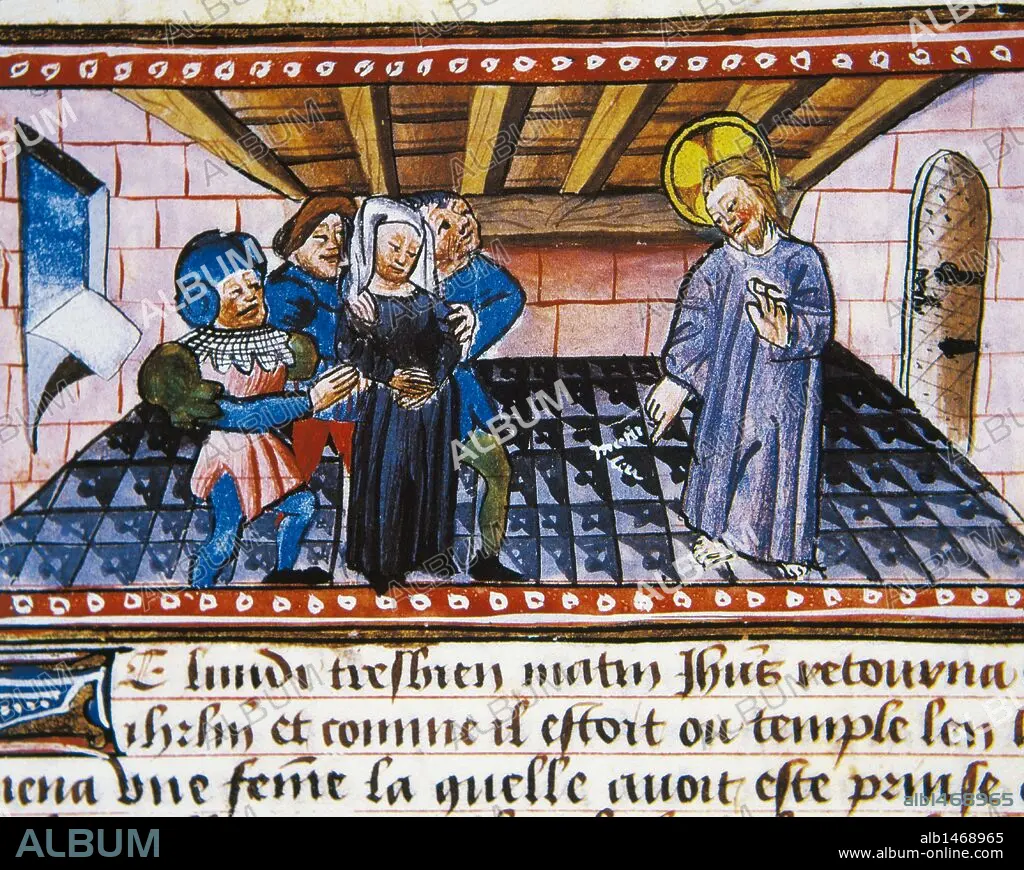 E lundi tresbien matin Jhūs retourna
ihrlm et comme il estoit ou temple len
mena vne feme la quelle auoit este prinse
ALBUM
alb1468965
alb1468965
www.album-online.com